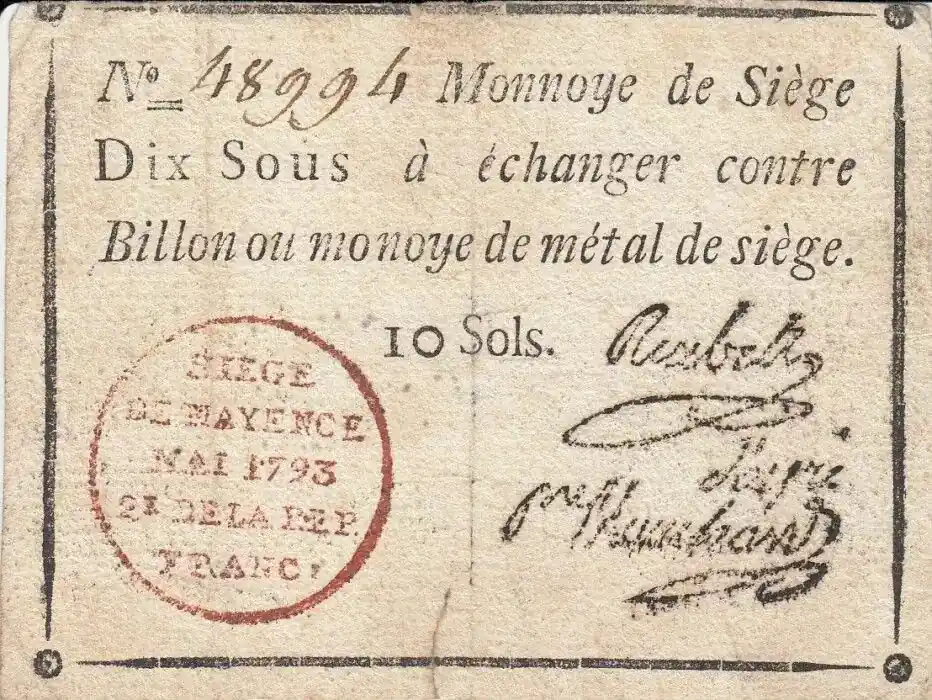 No 48994 Monnoye de Siège
Dix Sous à échanger contre
Billon ou monoye de métal de siège.
10 Sols.
SIEGE
DE MAYENCE
MAI 1793
2E DE LA REP.
FRANC.
Reubell